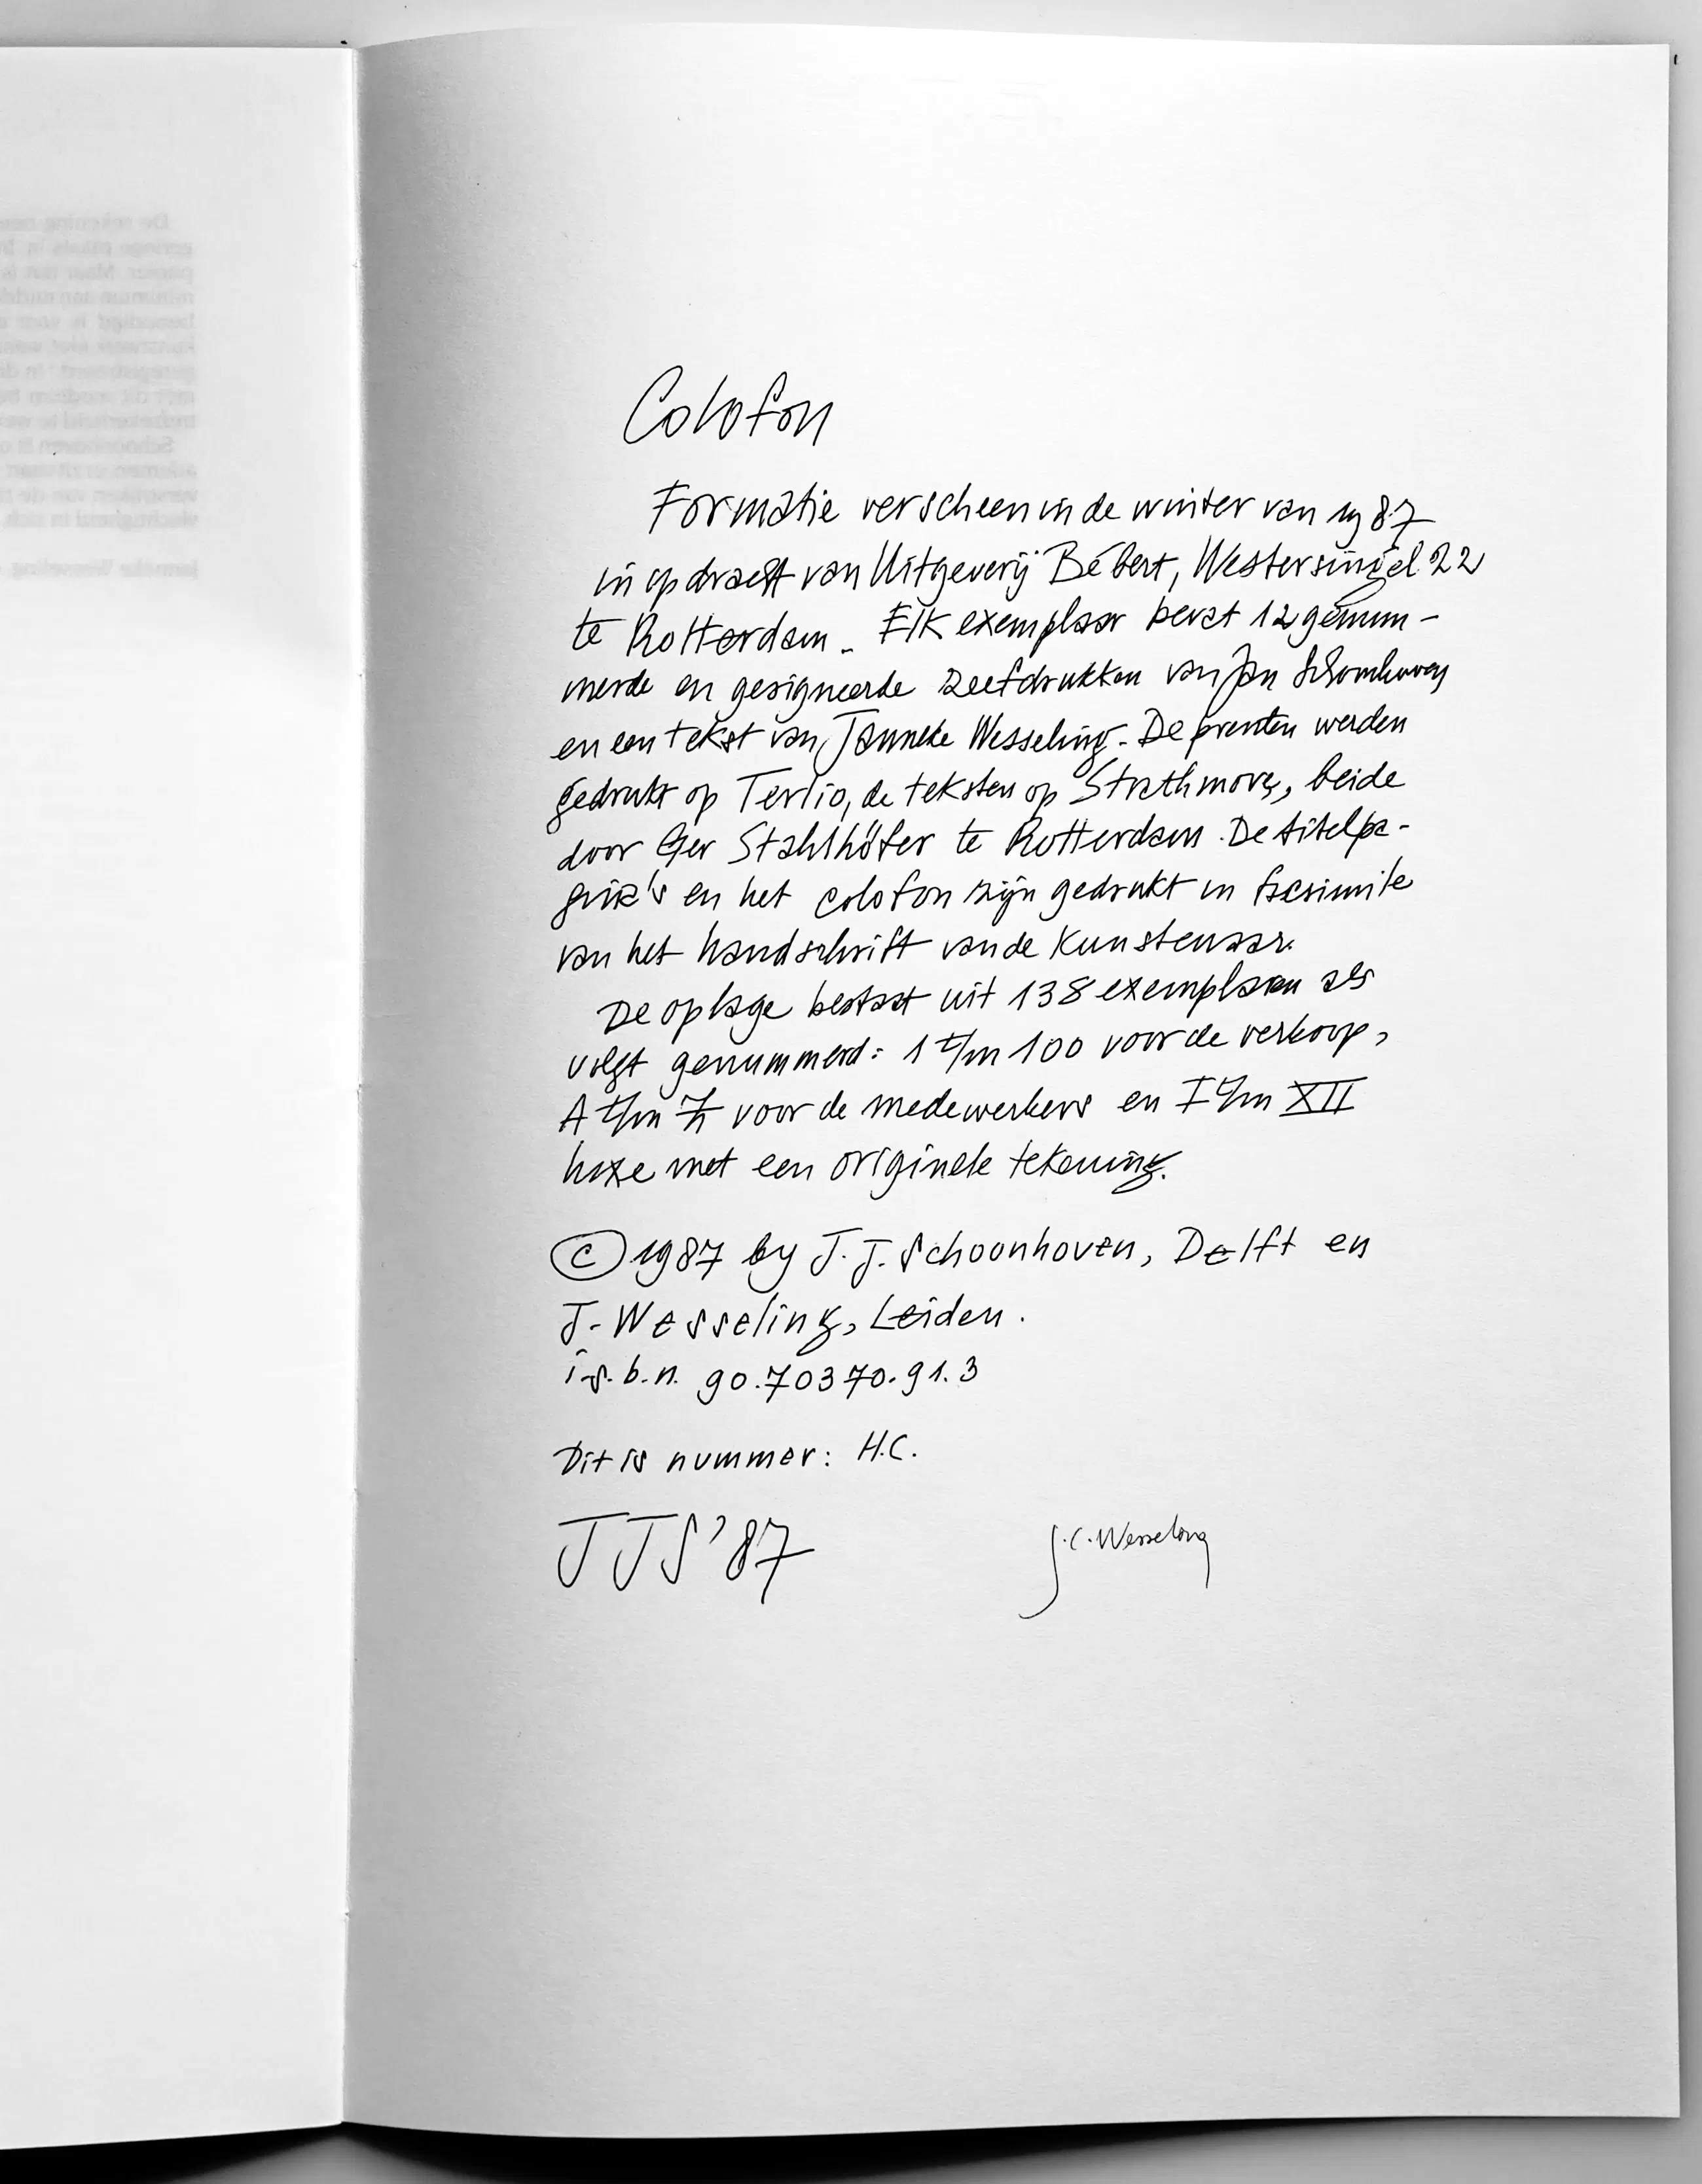 Colofon
Formatie verscheen in de winter van 1987
in opdracht van Uitgeverij Bébert, Westersingel 22
te Rotterdam. Elk exemplaar bevat 12 genum-
merde en gesigneerde zeefdrukken van Jan Schoonhoven
en een tekst van Janneke Wesseling. De prenten werden
gedrukt op Tertio, de teksten op Strathmore, beide
door Ger Stahlhöfer te Rotterdam. De titelpa-
gina's en het colofon zijn gedrukt in facsimile
van het handschrift van de kunstenaar.
De oplage bestaat uit 138 exemplaren als
volgt genummerd: 1 t/m 100 voor de verkoop,
A t/m Z voor de medewerkers en I t/m XII
luxe met een originele tekening.
© 1987 by J. J. Schoonhoven, Delft en
J. Wesseling, Leiden.
i.s.b.n. 90.70370.91.3
Dit is nummer: H.C.
JJS '87
J.C. Wesseling